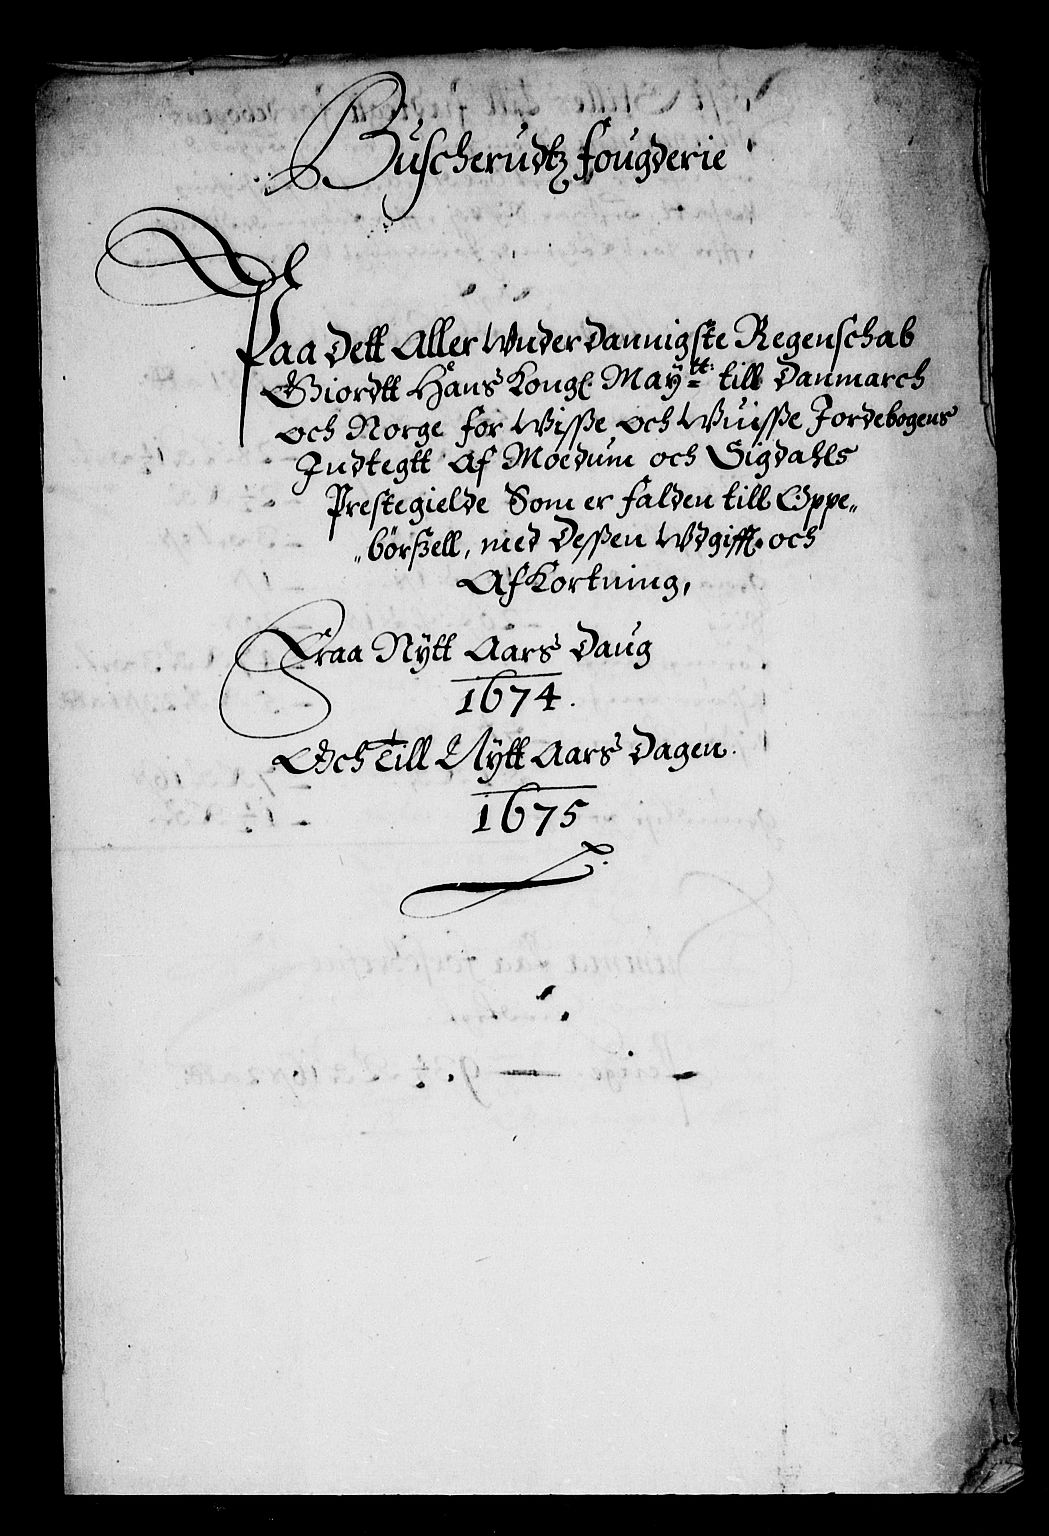 Buscherudtz fougderie
Paa Dett Aller Wnder Dannigste Regenschab
Giordtt Hans Kongl. Maÿtt: till Danmarch
och Norge for Wisße och Wuisße Jordebogens
Indtegtt Af Moedum och Sigdahls
Prestegielde Som er falden till Oppe„
„börßell, med Desßen Wdgifft. och
AfKortning,
Fraa Nÿtt Aars Daug
1674.
Och Till Nÿtt Aars Dagen.
1675